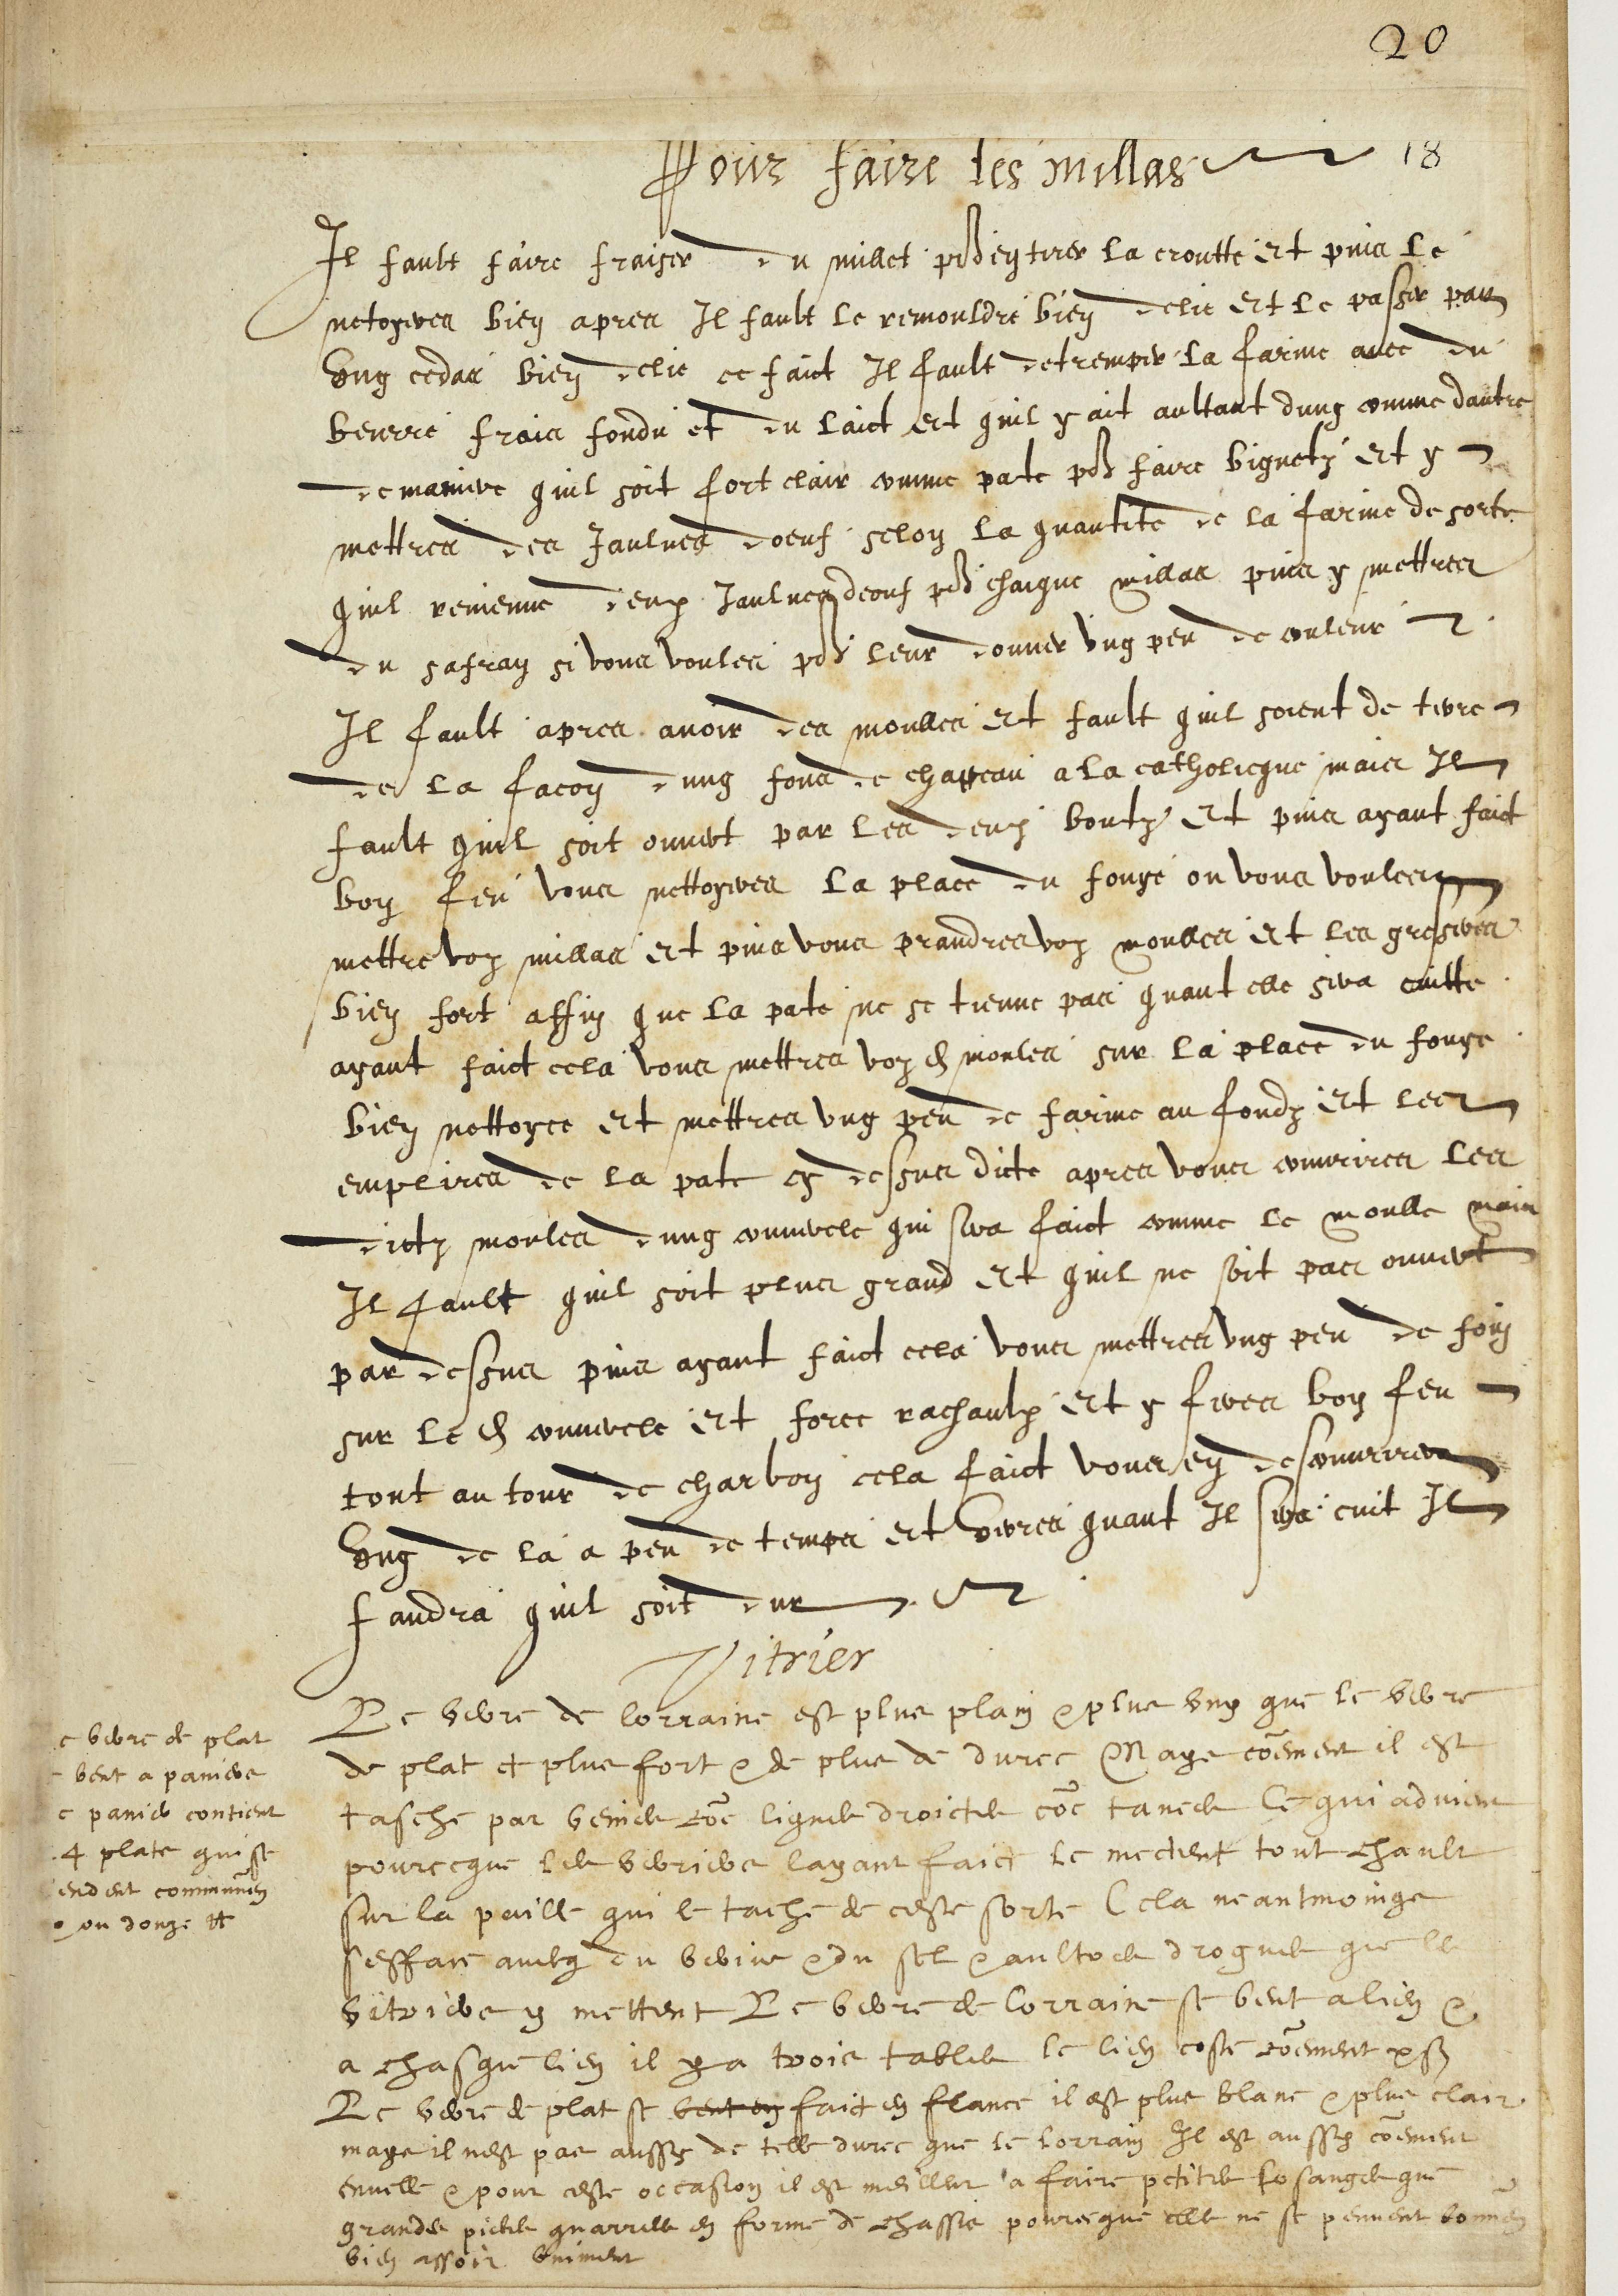 20
Pour faire les millas 18
Il fault faire fraiser du millet pour en tirer la croutte Et puis le
netoyeres bien apres Il fault le remouldre bien delie Et le passer par
ung cedas bien delie ce faict Il fault detremper la farine avec du
beurre frais fondu et du laict Et quil y ait aultant dung comme dautre
de maniere quil soit fort clair comme pate pour faire bignetz Et y
mettres des Jaulnes doeuf selon la quantite de la farine de sorte
quil revienne deux Jaulnes deouf pour chaique millas puis y mettres
du safran si vous voules pour leur donner ung peu de couleur
Il fault apres avoir des moulles Et fault quil soient de terre
de la facon dung fons de chappeau a la catholicque mais Il
fault quil soit ouvert par les deux boutz Et puis ayant faict
bon feu vous nettoyeres la place du fouye ou vous voules
mettre voz millas Et puis vous prandres voz moulles Et les gresseres
bien fort affin que la pate ne se tienne pas quant elle sera cuitte
ayant faict cela vous mettres voz d moules sur la place du fouye
bien nettoyee Et mettres ung peu de farine au fondz Et les
emplires de la pate cy dessus dicte apres vous couvrires les
dictz moules dung couvercle qui sera faict comme le moulle mais
Il fault quil soit plus grand Et quil ne soit pas ouvert
par dessus puis ayant faict cela vous mettres ung peu de foin
sur le d couvercle Et force rachaulx Et y feres bon feu
tout au tour de charbon cela faict vous en descouvrires
ung de la a peu de temps Et verres quant Il sera cuit Il
faudra quil soit dur
Vitrier
Le verre de lorraine est plus plain & plus uny que le verre
de plat et plus fort & de plus de duree Mays coement il est
tasche par veines coe lignes droictes coe tanees Ce qui advient
pource que les verriers layant faict le mectent tout chault
sur la paille qui le tache de ceste sorte Cela neantmoings
sefface avecq du verine & du sel & aultres drogues que les
vitriers y mettent Le verre de lorraine se vent a lien &
a chasque lien il y a trois tables le lien couste coement xß
Le verre de plat se vent en faict en france il est plus blanc & plus clair
mays il nest pas aussy de telle duree que le lorrain Il est aussy coement
envelle & pour ceste occasion il est meilleur a faire petites losanges que
grandes pieces quarrees en forme de chassis pource que elles ne se peuvent bonnem
bien assoir uniment
e verre de plat
e vent a paniers
e panier contient
.4 plats qui se
endent communem
 ou douze tt